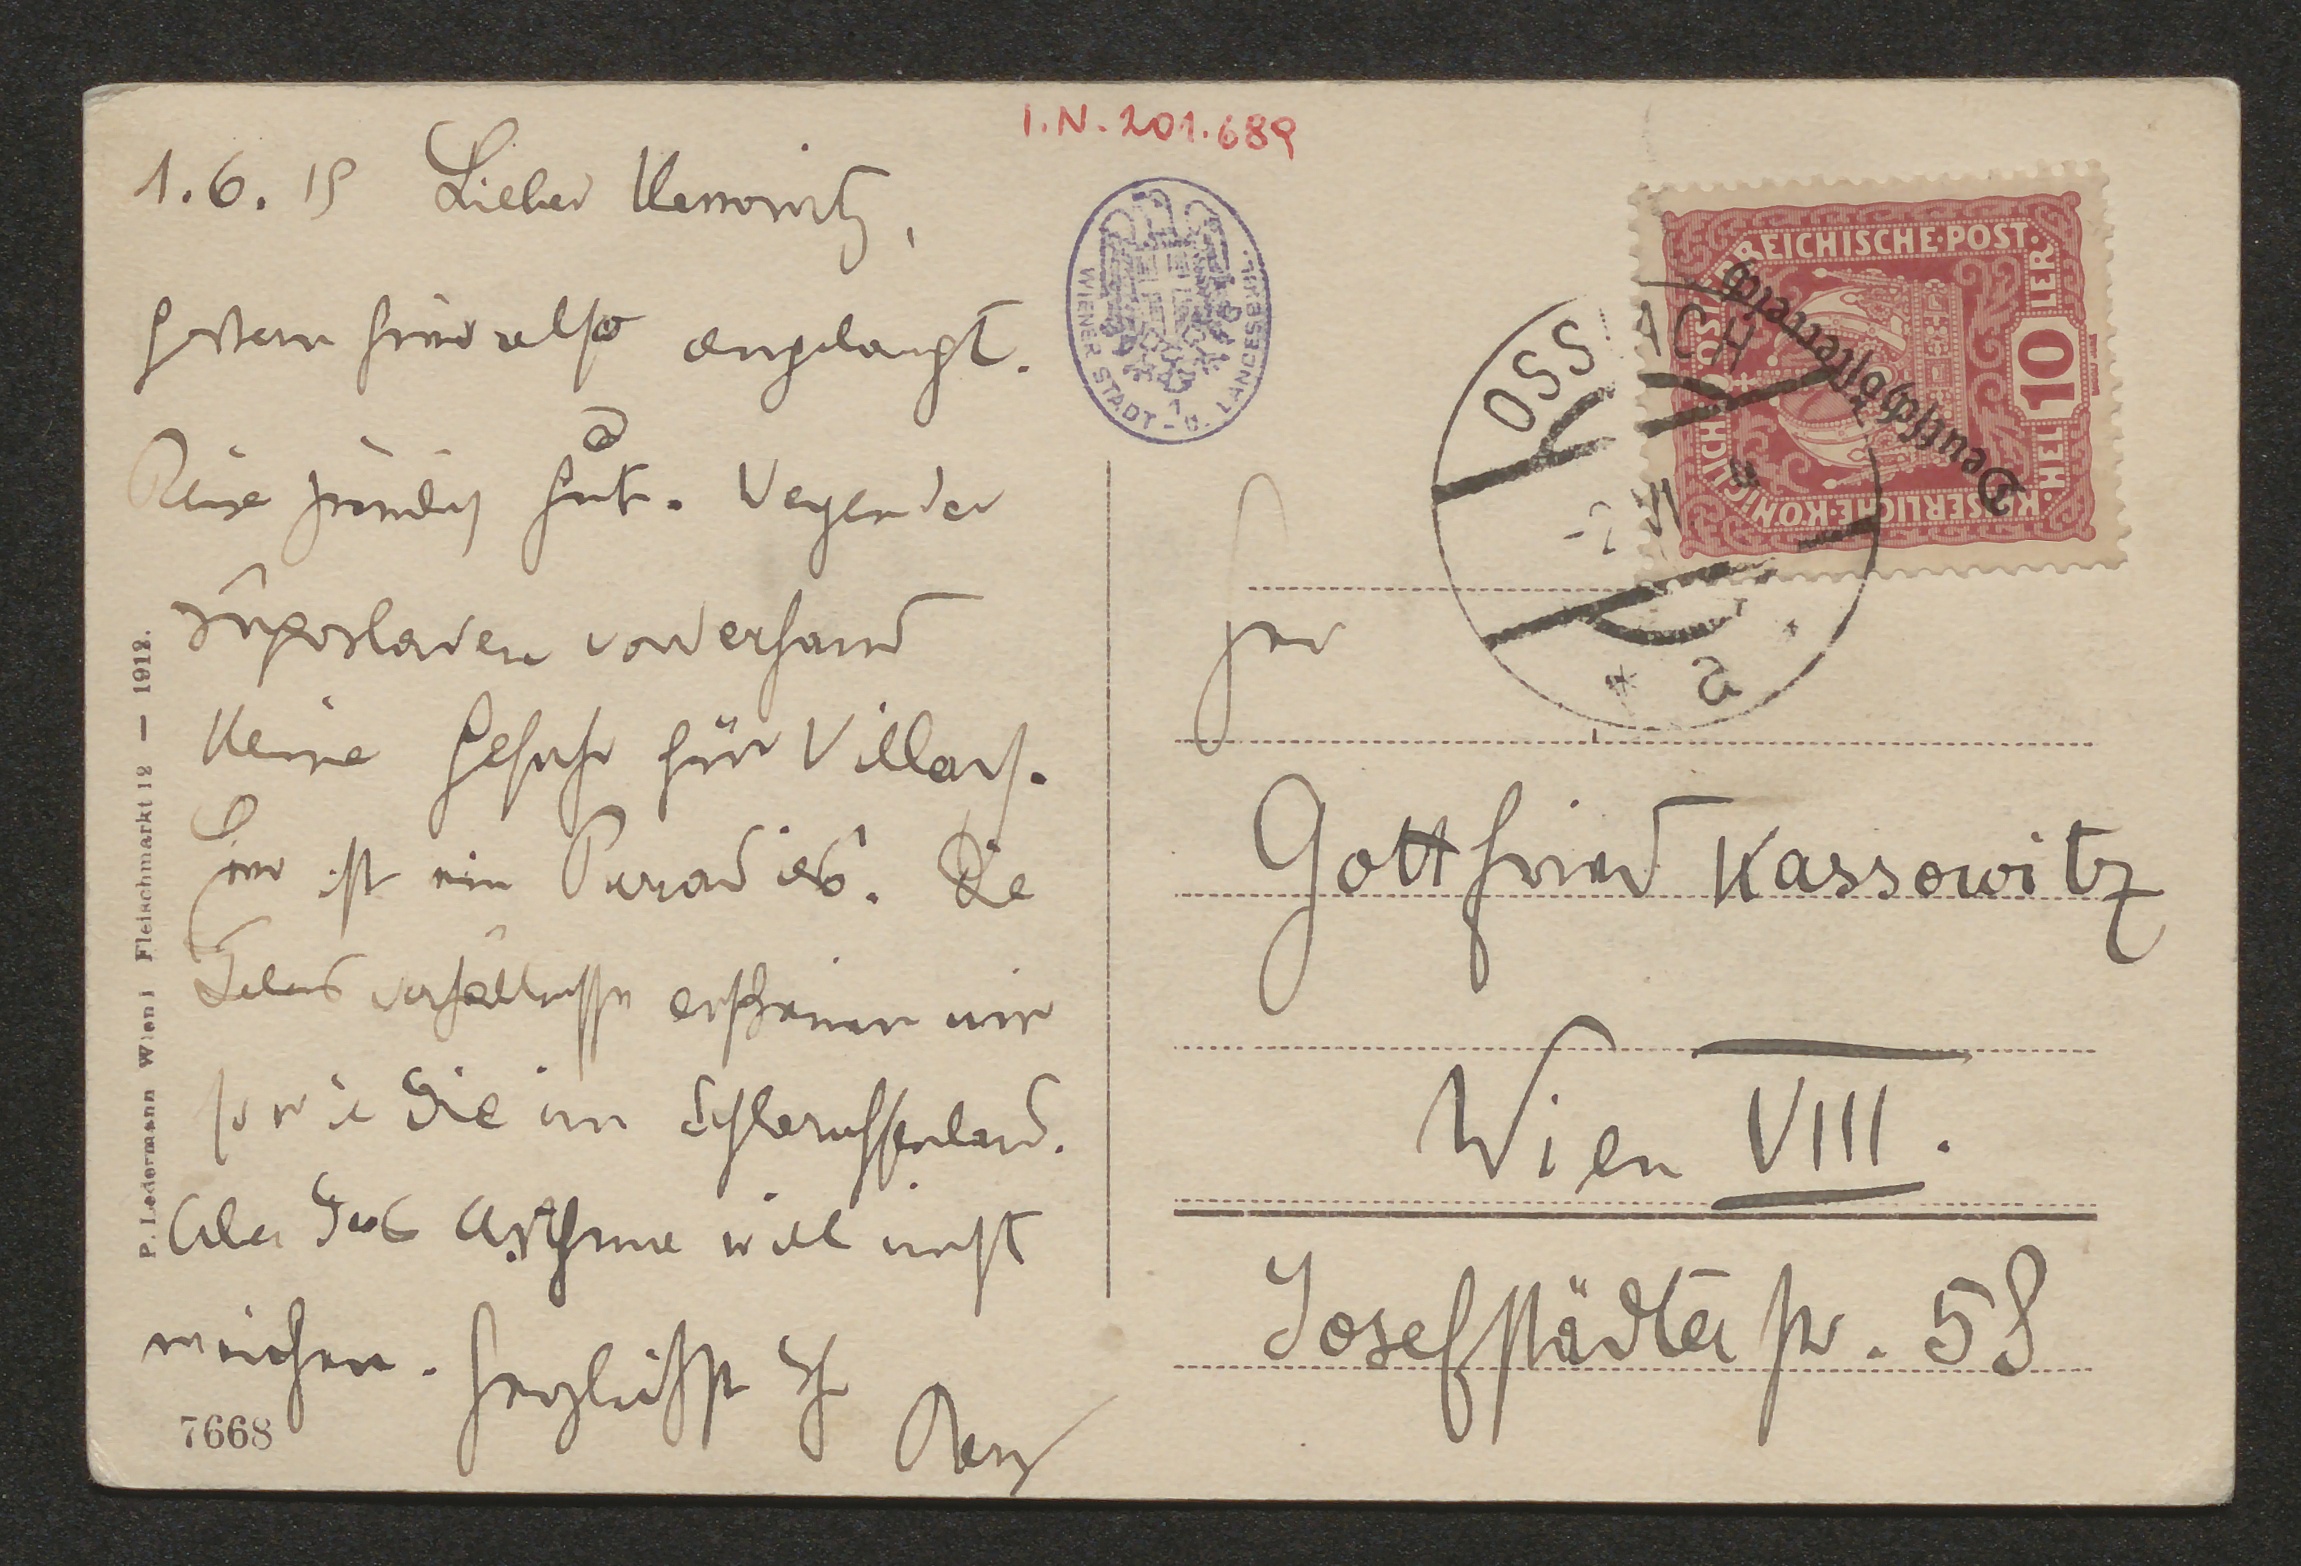 I.N. 201.689
1.6.19 Lieber Kassowitz,
Gestern hier also angelangt.
Reise ziemlich gut. Wegen der
Jugoslaven vorderhand
keine Gefahr für Villach.
Hier ist ein Paradies. Die
Lebensverhältnisse erscheinen mir
so wie die im Schlaraffenland.
Aber das Asthma will nicht
weichen. Herzlichst Ihr
7668
P. Ledermann Wien I Fleischmarkt 12 — 1912.
WIENER STADT- u. LANDESBIBL.
KAISERLICHE KÖNIGLICHE ÖSTERREICHISCHE POST
10 HELLER
Deutschösterreich
OSSIACH
-2 VI
* a *
Gottfried Kassowitz
Wien VIII.
Josefstädterstr. 58